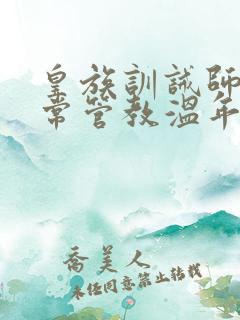 皇族訓誡師日
常管教溫年
喬美人
未经同意禁止转载